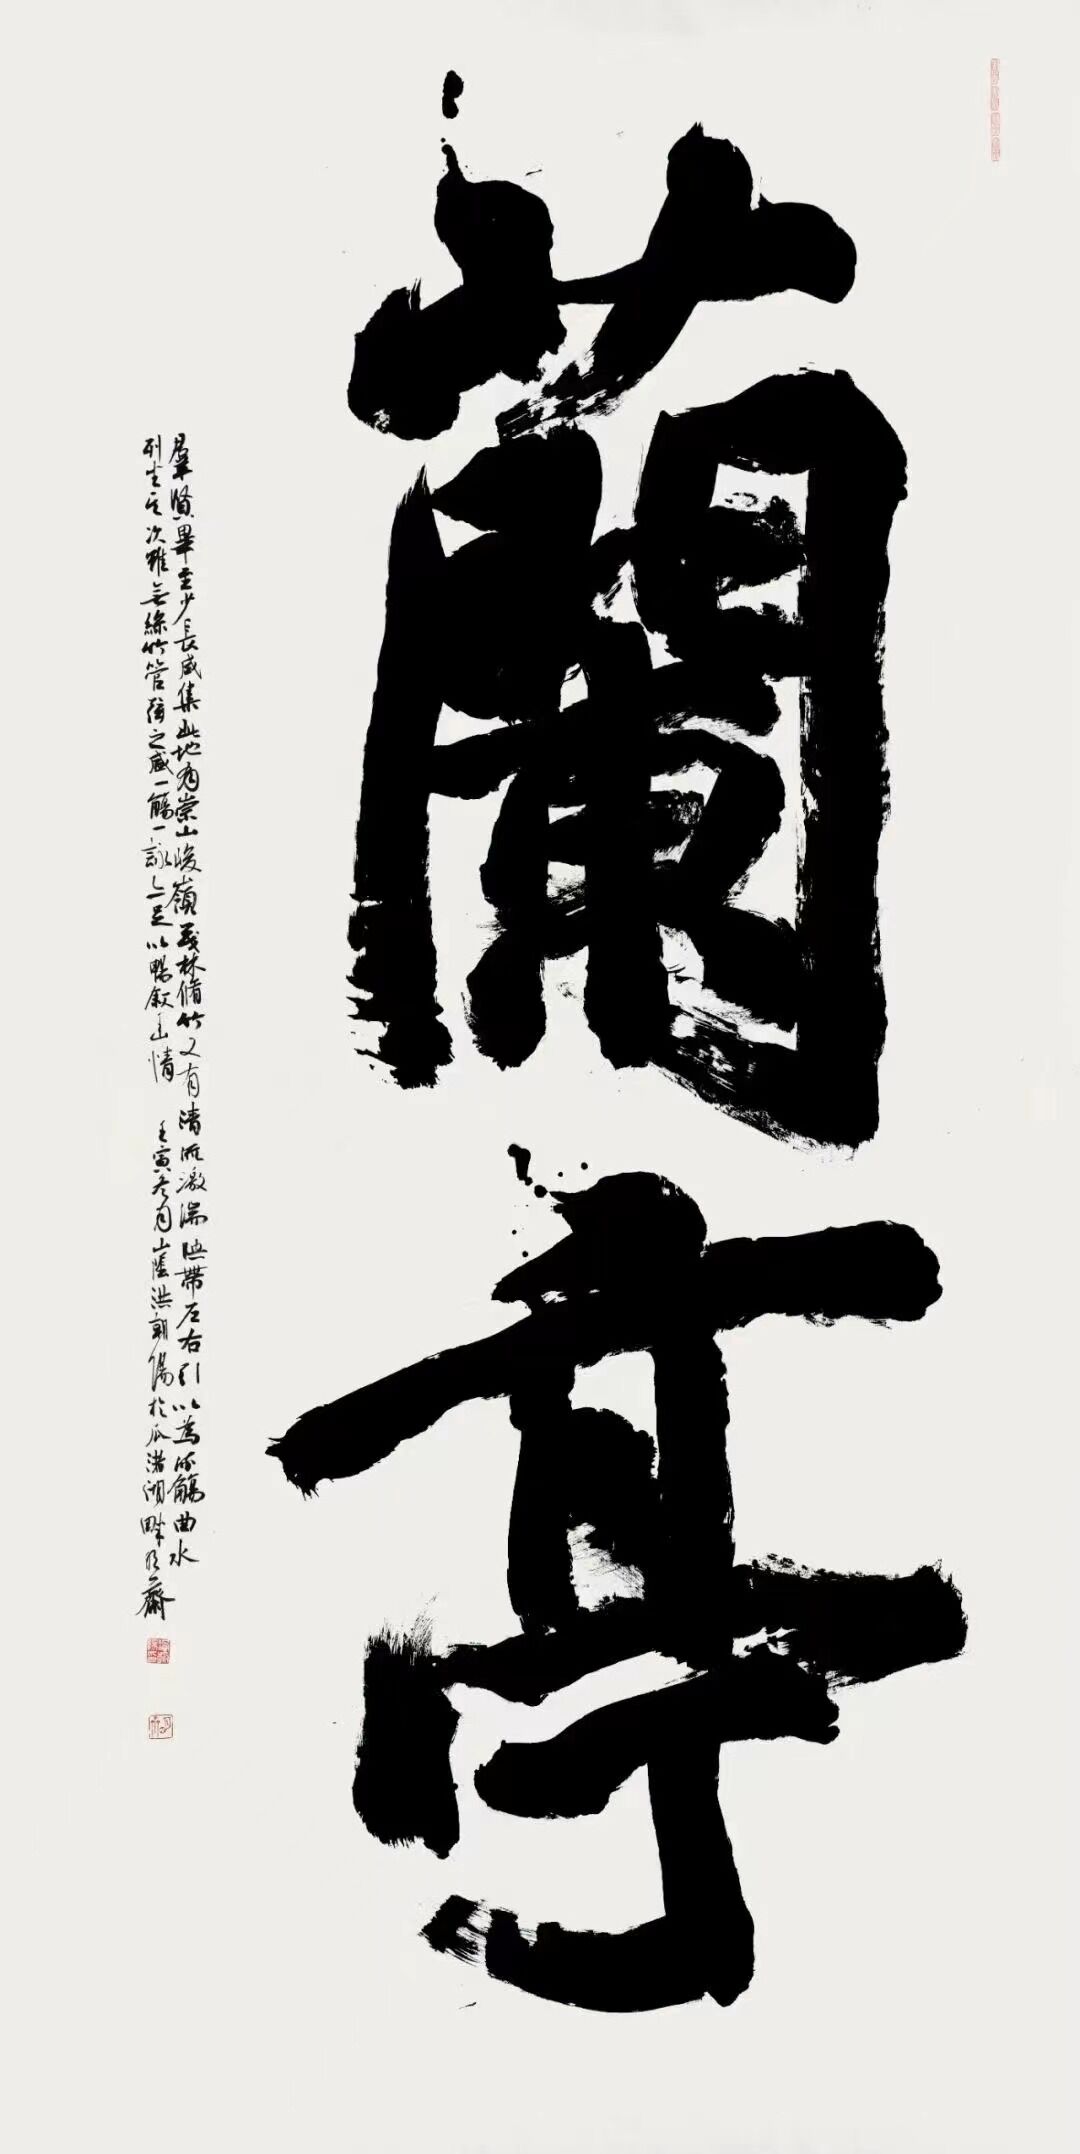 蘭亭
羣賢畢至少長咸集此地有崇山峻嶺茂林脩竹又有清流激湍暎帶左右引以為流觴曲水
列坐其次雖無絲竹管弦之盛一觴一詠亦足以暢敘幽情 壬寅冬月山陰洪朝陽於瓜渚湖畔 齋